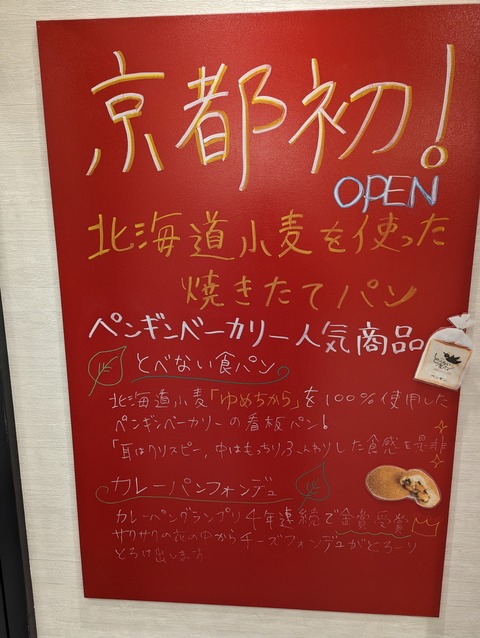 京都初!
OPEN
北海道小麦を使った
焼きたてパン
ペンギンベーカリー人気商品
とべない食パン。
北海道小麦「ゆめちから」を100%使用した
ペンギンベーカリーの看板パン!
「耳はクリスピー,中はもっちりふんわりした食感を是非
カレーパンフォンデュ
カレーパングランプリ4年連続で金賞受賞
サクサクの衣の中からチーズフォンデュがとろーり
とろけ出します